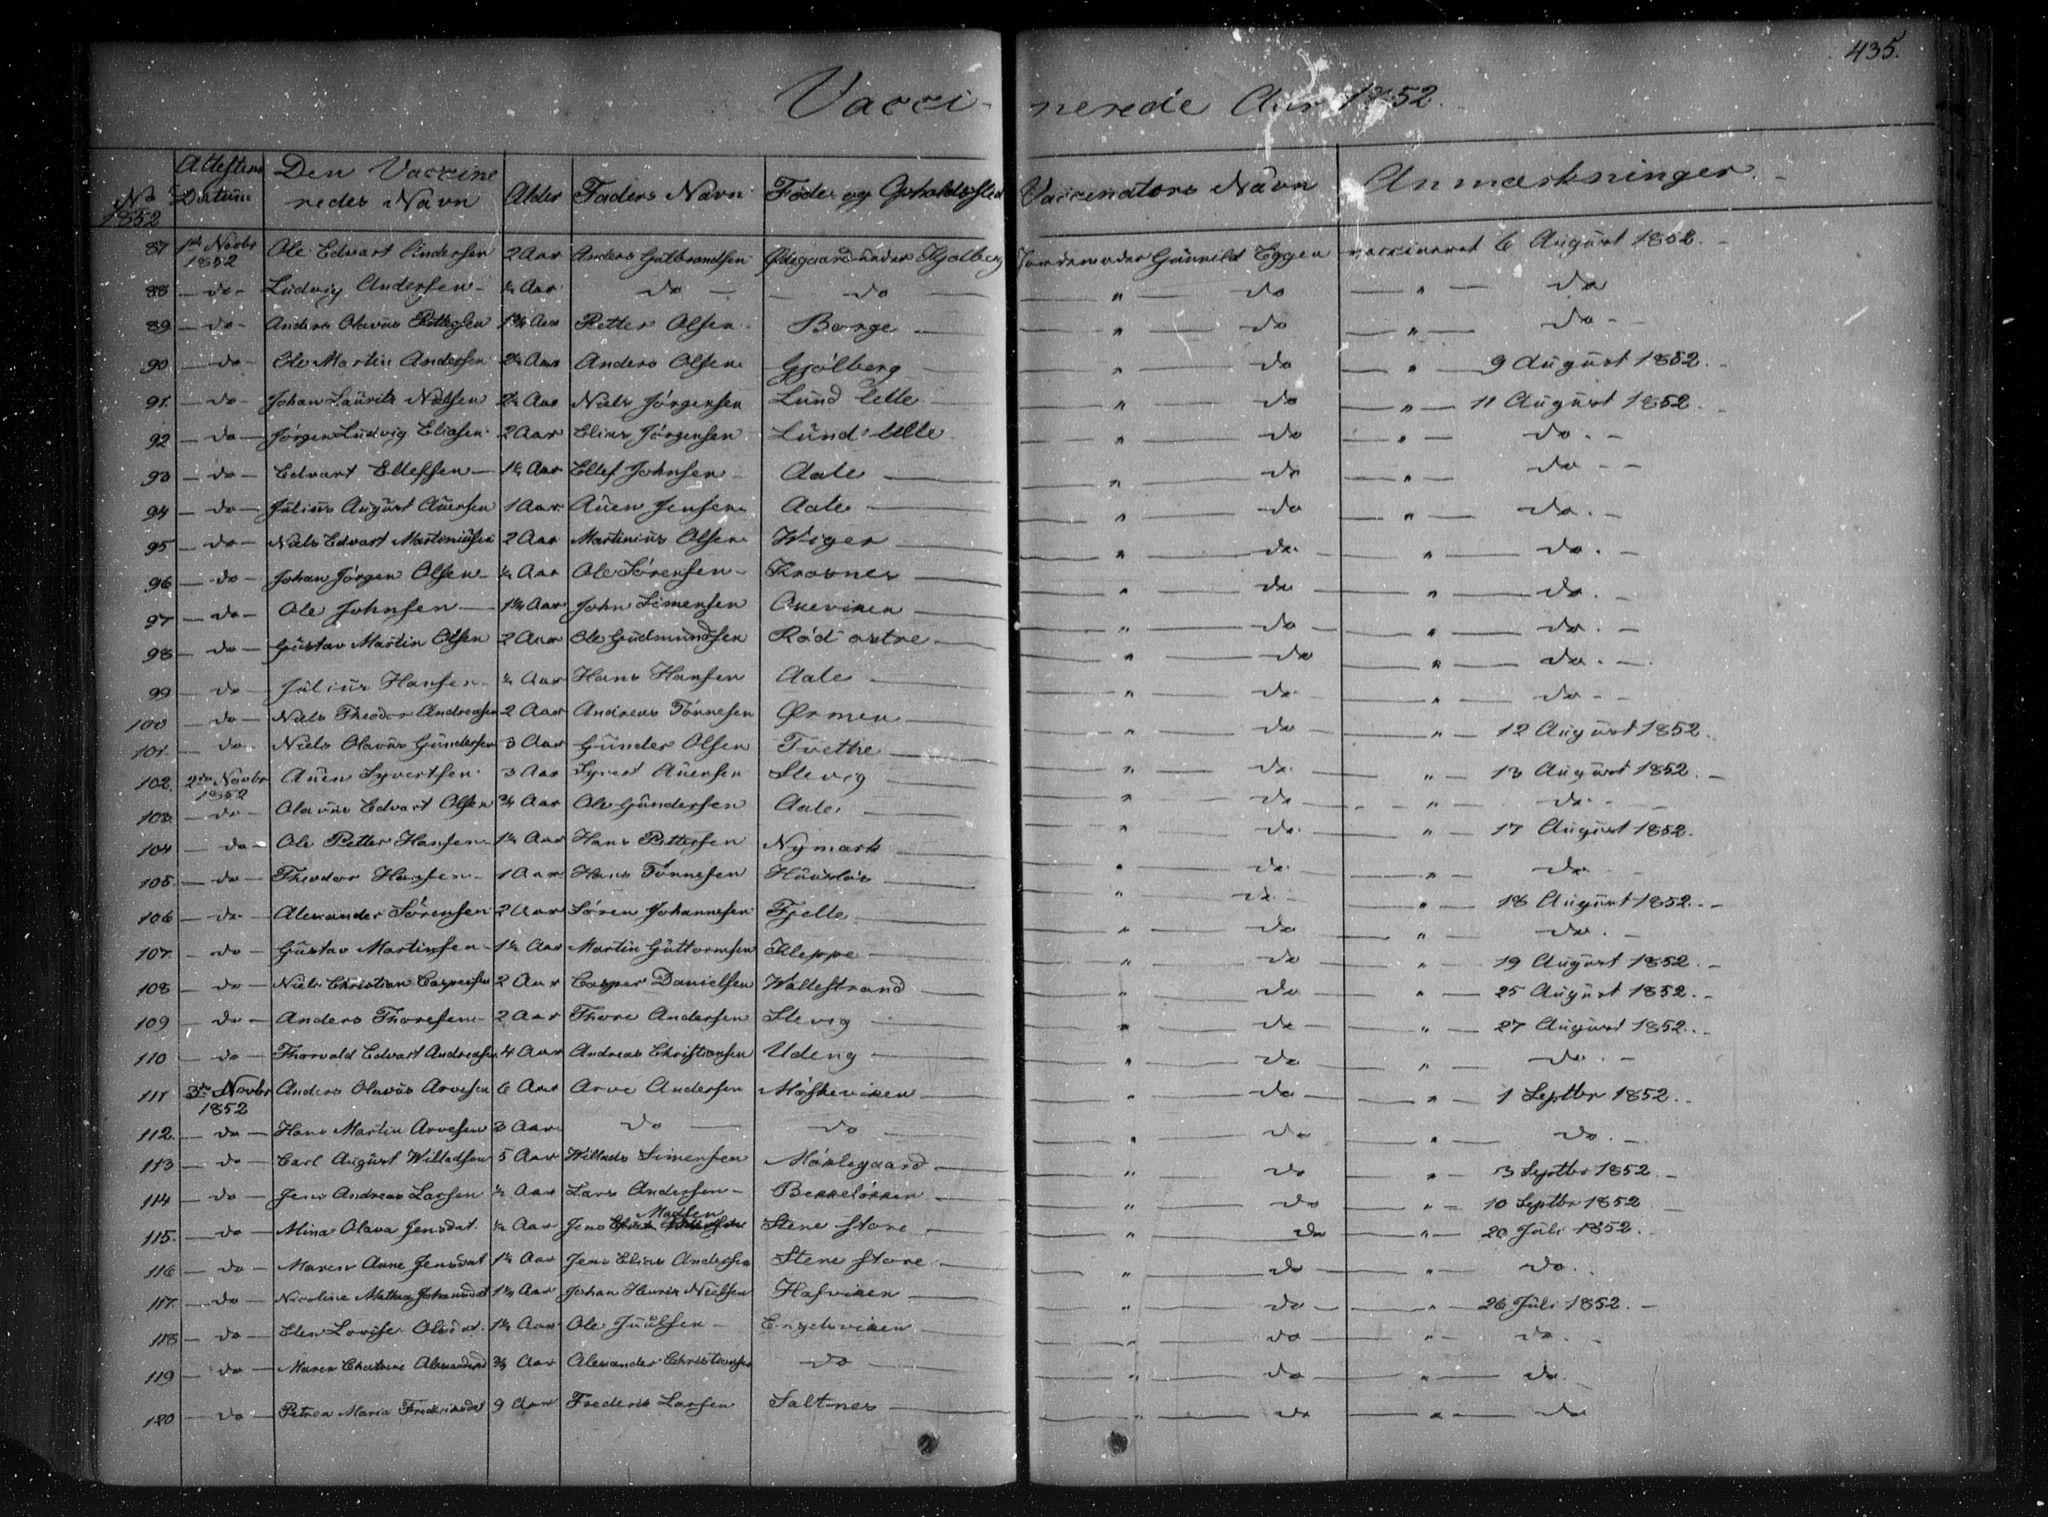 435.
Vacci- nerede Aar 1852.
No 1852 | Attestens Datum | Den Vaccineredes Navn | Alder | Faders Navn | Føde- og Opholdssted | Vaccinators Navn | Anmærkninger.
87 | 1ste Novbr 1852 | Ole Edvart Andersen | 2 Aar | Anders Gulbrandsen | Ødegaard under Kjølberg | Jordemoder Gunnild Eggen | vaccineret 6 August 1852.
88 | do | Ludvig Andersen | ½ Aar | do | do | " do | " do
89 | do | Anders Olavus Pettersen | 1¾ Aar | Petter Olsen | Borge | " do | " do
90 | do | Ole Martin Andersen | 2½ Aar | Anders Olsen | Gjølberg | " do | " 9 August 1852.
91. | do | Johan Lauritz Nielsen | 2½ Aar | Niels Jörgensen | Lund lille | " do | " 11 August 1852.
92 | do | Jörgen Ludvig Eliasen | 2 Aar | Elias Jörgensen | Lund lille | " do | " do.
93 | do | Edvart Ellefsen | 1½ Aar | Ellef Johnsen | Aale | " do | " do
94 | do | Julius August Auensen | 1 Aar | Auen Jensen | Aale | " do | " do.
95 | do | Niels Edvart Martiniusen | 2 Aar | Martinius Olsen | Wiger | " do. | " do.
96 | do | Johan Jörgen Olsen | ½ Aar | Ole Sörensen | Krosnes | " do | " do.
97 | do | Ole Johnsen | 1¾ Aar | John Simensen | Oueviken | " do | " do.
98 | do | Gustav Martin Olsen | 2 Aar | Ole Gudmundsen | Röd östre | " do | " do.
99 | do | Julius Hansen | ½ Aar | Hans Hansen | Aale | " do | " do
100 | do | Niels Theodor Andreasen | 2 Aar | Andreas Tönnesen | Ørmen | " do | " 12 August 1852.
101. | do | Niels Olavus Gundersen | 3 Aar | Gunder Olsen | Tvethe | " do | " 13 August 1852.
102. | 2den Novbr 1852 | Auen Syvertsen | 3 Aar | Syvert Auensen | Slevig | " do | " do.
103. | do | Olavus Edvart Olsen | ¾ Aar | Ole Gundersen | Aale | " do. | " 17 August 1852.
104 | do | Ole Petter Hansen | 1½ Aar | Hans Pettersen | Nymark | " do. | " do
105. | do | Theodor Hansen | 1 Aar | Hans Tönnesen | Huuslös | " do. | " 18 August 1852.
106 | do | Alexander Sörensen | 2 Aar | Sören Johannesen | Fjelle | " do | " do.
107. | do | Gustav Martinsen | 1½ Aar | Martin Guttormsen | Kleppe | " do | " 19 August 1852.
108 | do | Niels Christian Caspersen | 2 Aar | Casper Danielsen | Wallestrand | " do | " 25 August 1852.
109 | do | Anders Thoresen | 2 Aar | Thore Andersen | Slevig | " do | " 27 August 1852.
110 | do | Thorvald Edvart Andreasen | 4 Aar | Andreas Christiansen | Udeng | " do | " do.
111 | 3die Novbr 1852 | Anders Olavus Arvesen | 6 Aar | Arve Andersen | Møskeviken | " do | " 1 Septbr 1852.
112. | do | Hans Martin Arvesen | 3 Aar | do | do | " do | " do.
113 | do | Carl August Willadsen | 5 Aar | Willads Simensen | Møklegaard | " do | " 3 Septbr 1852.
114 | do | Jens Andreas Larsen | ½ Aar | Lars Andersen | Bekkeløkken | " do | " 10 Septbr 1852
115. | do | Mina Olava Jensdat. | ½ Aar | Jens Madsen | Stene store | " do | " 20 Juli 1852.
116 | do | Maren Anne Jensdat | 1½ Aar | Jens Elias Andersen | Stene store | " do | " do.
117. | do | Nicoline Mathea Johansdat | 1½ Aar | Johan Henrik Nielsen | Hafviken | " do | " 26 Juli 1852.
118 | do | Elen Lovise Olsdat. | 1½ Aar | Ole Juulsen | Engelsviken | " do | " do.
119 | do | Maren Chatrine Alexandersd | ¾ Aar | Alexander Christiansen | do | " do | " do.
120 | do | Petrea Maria Frederiksdat | 9 Aar | Frederik Larsen | Saltnes | " do | " do